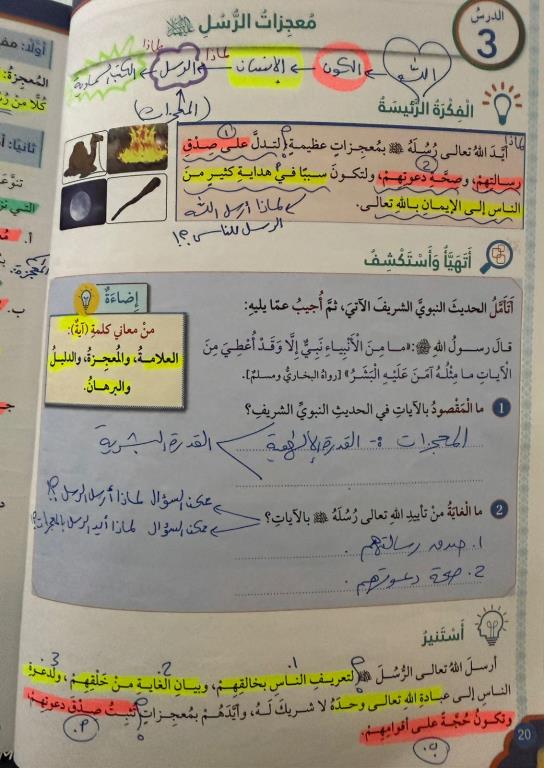 الدرس
3
معجزاتُ الرُّسُلِ
لماذا
لماذا
الله
الكون
الإنسان
الرسل
الكتب السماوية
(المعجزات)
الْفِكْرَةُ الرَّئيسَةُ
لماذا
أيَّدَ اللهُ تعالى رُسُلَهُ ﷺ بمعجزاتٍ عظيمةٍ؛ لتدلَّ على صِدْقِ
1
رسالتِهِمْ، وصحَّةِ دعوتِهِمْ، ولتكونَ سببًا في هدايةِ كثيرٍ مِنَ
2
الناسِ إلى الإيمانِ باللهِ تعالى.
لماذا أرسل الله
الرسل للناس ؟!
أَتَهَيَّأُ وَأَسْتَكْشِفُ
إضاءَةٌ
منْ معاني كلمةِ (آيَة):
العلامةُ، والمُعجِزةُ، والدليلُ
والبرهانُ.
أَتَأَمَّلُ الحديثَ النبويَّ الشريفَ الآتيَ، ثمَّ أُجيبُ عمّا يليهِ:
قالَ رسولُ اللهِ ﷺ: «ما مِنَ الْأَنْبِياءِ نَبِيٌّ إِلَّا وَقَدْ أُعْطِيَ مِنَ
الْآياتِ ما مِثْلُهُ آمَنَ عَلَيْهِ الْبَشَرُ» [رواهُ البخاريُّ ومسلمٌ].
1 ما الْمَقْصودُ بالآياتِ في الحديثِ النبويِّ الشريفِ؟
المعجزات :- القدرة الإلهية > القدرة البشرية
2 ما الْغايَةُ منْ تأييدِ اللهِ تعالى رُسُلَهُ ﷺ بالآياتِ؟
ممكن السؤال لماذا أرسل الرسل ؟!
ممكن السؤال لماذا أيد الرسل بالمعجزات؟!
1. صدق رسالتهم .
2. صحة دعوتهم .
أَسْتَنيرُ
أرسلَ اللهُ تعالى الرُّسُلَ ﷺ لتعريفِ الناسِ بخالقِهِمْ، وبيانِ الغايةِ مِنْ خَلْقِهِمْ، ولدعوةِ
1.
2.
3
الناسِ إلى عبادةِ اللهِ تعالى وحدَهُ لا شريكَ لَهُ، وأيَّدَهُمْ بمعجزاتٍ؛ تُثبِتُ صدْقَ دعوتِهِمْ،
وتكونُ حُجَّةً على أقوامِهِمْ.
20
أوّلًا:
المُعجِزةُ:
ثانيًا:
أ.
ب.